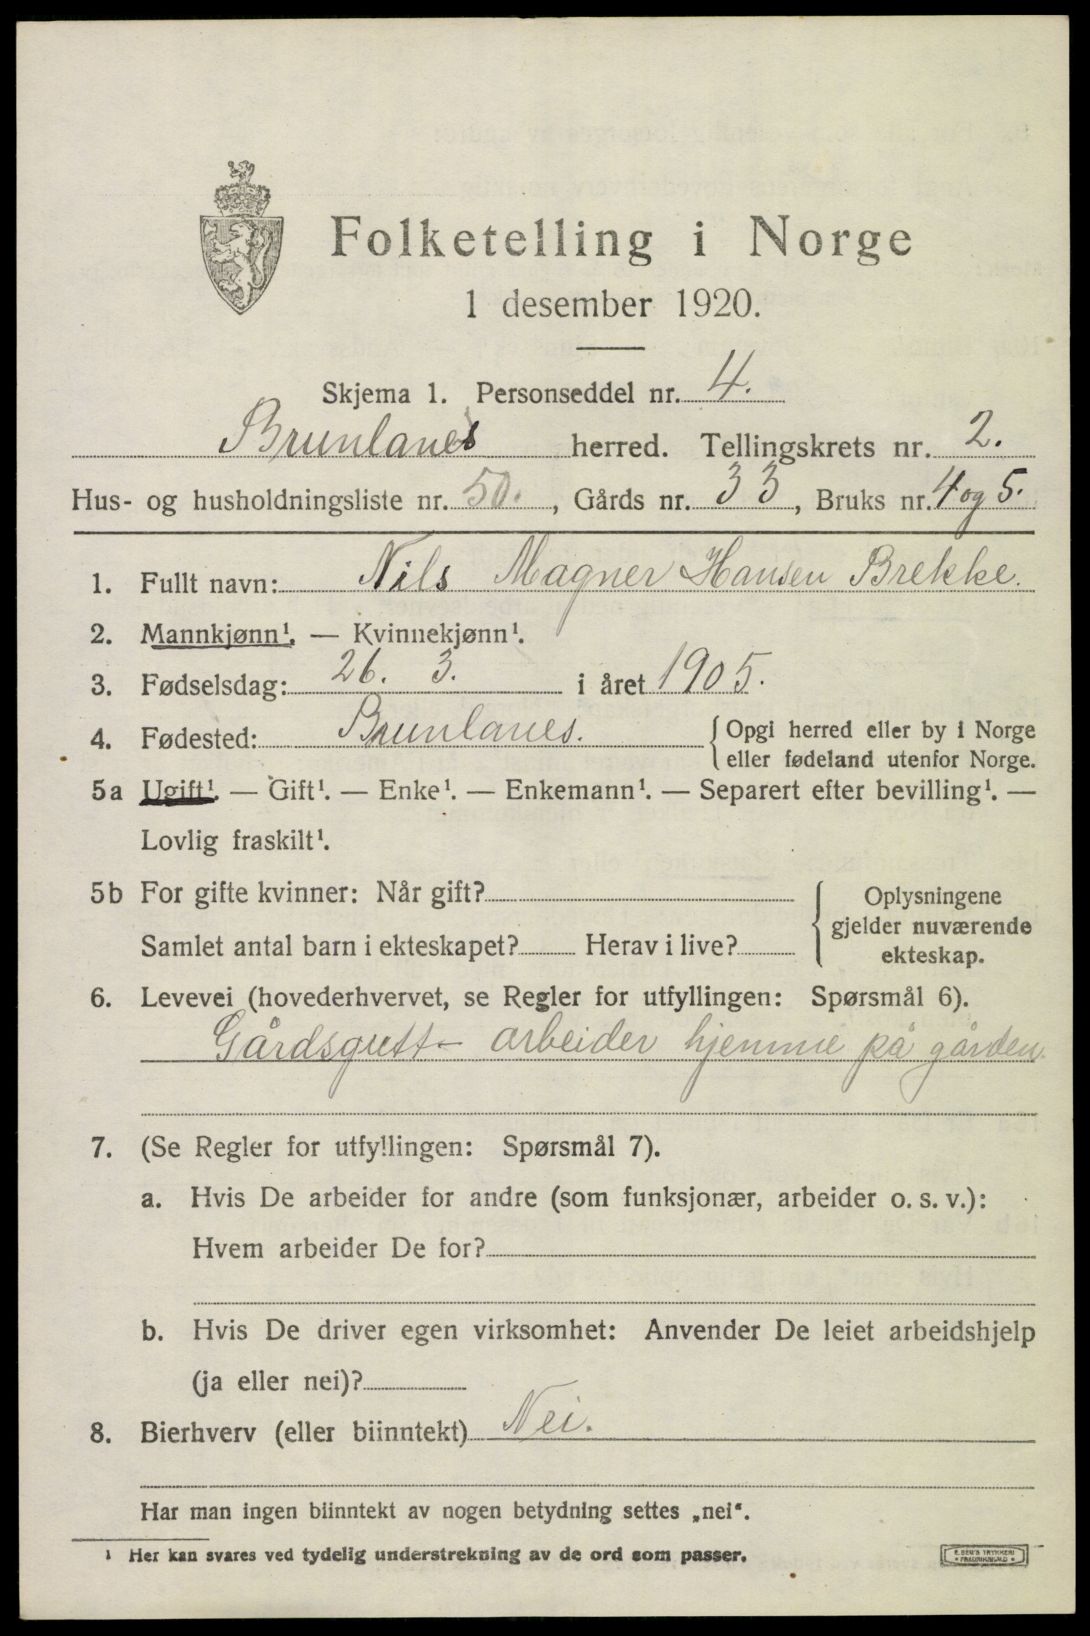 Folketelling i Norge
1 desember 1920.
Skjema 1. Personseddel nr. 4.
Brunlanes herred. Tellingskrets nr. 2.
Hus- og husholdningsliste nr. 50., Gårds nr. 33, Bruks nr. 4 og 5.
1. Fullt navn: Nils Magner Hansen Brekke.
2. Mannkjønn¹. — Kvinnekjønn¹.
3. Fødselsdag: 26. 3. i året 1905.
4. Fødested: Brunlanes. { Opgi herred eller by i Norge
eller fødeland utenfor Norge.
5a Ugift¹. — Gift¹. — Enke¹. — Enkemann¹. — Separert efter bevilling¹. —
Lovlig fraskilt¹.
5b For gifte kvinner: Når gift? { Oplysningene
gjelder nuværende
Samlet antal barn i ekteskapet? Herav i live?
ekteskap.
6. Levevei (hovederhvervet, se Regler for utfyllingen: Spørsmål 6).
Gårdsgutt - arbeider hjemme på gården.
7. (Se Regler for utfyllingen: Spørsmål 7).
a. Hvis De arbeider for andre (som funksjonær, arbeider o. s. v.):
Hvem arbeider De for?
b. Hvis De driver egen virksomhet: Anvender De leiet arbeidshjelp
(ja eller nei)?
8. Bierhverv (eller biinntekt) Nei.
Har man ingen biinntekt av nogen betydning settes „nei“.
¹ Her kan svares ved tydelig understrekning av de ord som passer.